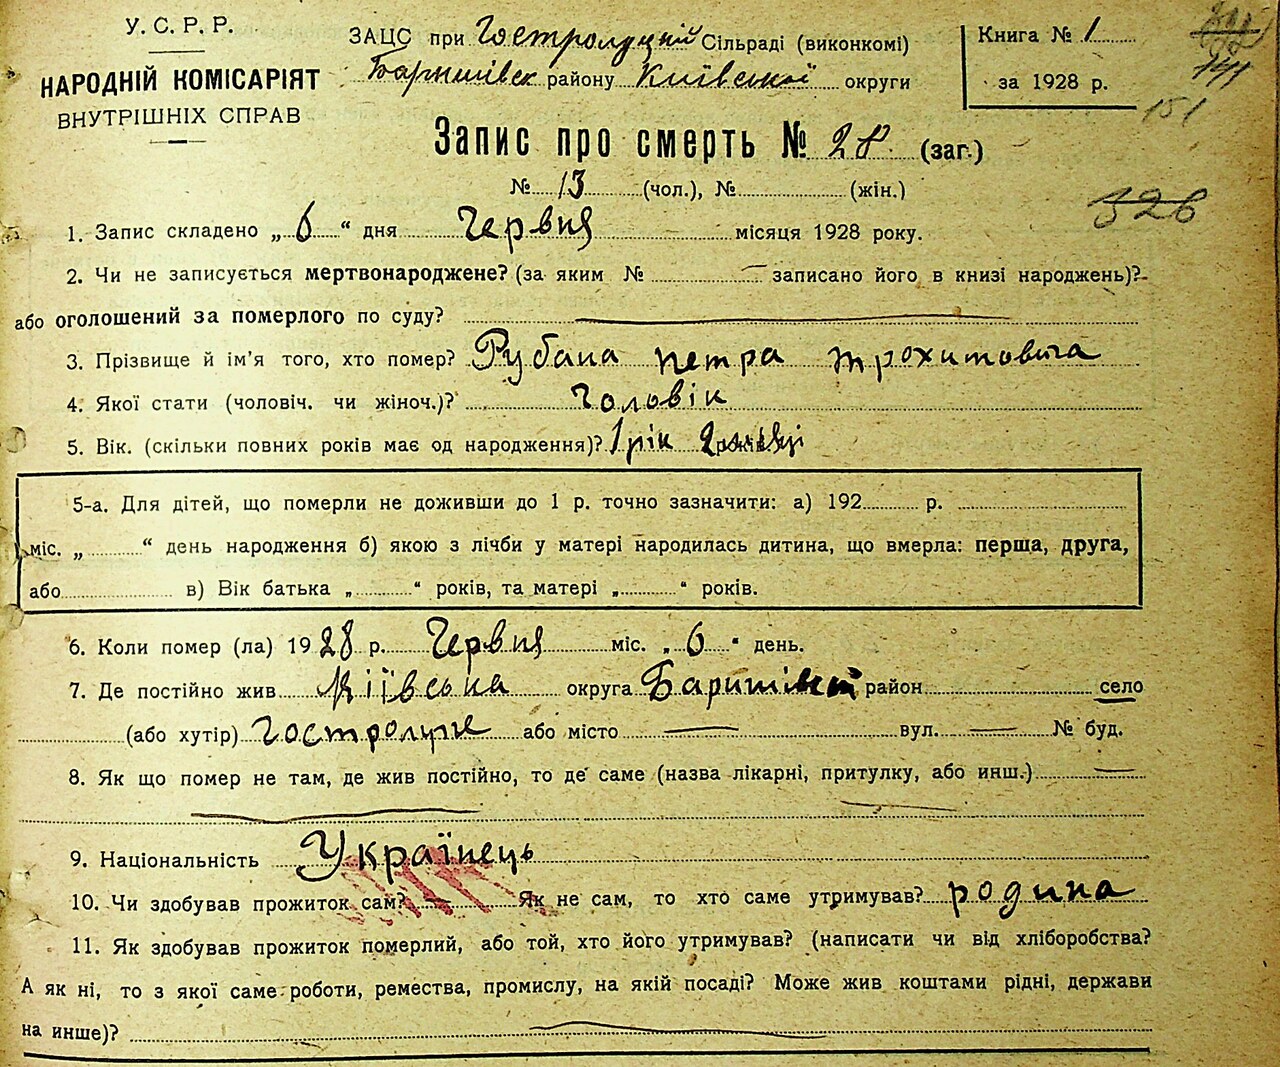 У. С. Р. Р.
НАРОДНІЙ КОМІСАРІЯТ
ВНУТРІШНІХ СПРАВ
ЗАЦС при Гостролуцкій Сільраді (виконкомі)
Баришівск району Київської округи
Книга № 1
за 1928 р.
151
Запис про смерть № 28 (заг.)
№ 13 (чол.), № (жін.)
326
1. Запис складено „ 6 “ дня Червня місяця 1928 року.
2. Чи не записується мертвонароджене? (за яким № — записано його в книзі народжень)?
або оголошений за померлого по суду?
3. Прізвище й ім'я того, хто помер? Рубана Петра Трохимовича
4. Якої стати (чоловіч. чи жіноч.)? Чоловік
5. Вік. (скільки повних років має од народження)? 1 рік 2 років
5-а. Для дітей, що померли не доживши до 1 р. точно зазначити: а) 192 р.
міс. „ “ день народження б) якою з лічби у матері народилась дитина, що вмерла: перша, друга,
або в) Вік батька „ “ років, та матері „ “ років.
6. Коли помер (ла) 1928 р. Червня міс. „ 6 “ день.
7. Де постійно жив Київська округа Баришівск район село
(або хутір) Гостролуче або місто — вул. — № буд.
8. Як що помер не там, де жив постійно, то де саме (назва лікарні, притулку, або инш.) —
9. Національність Українець
10. Чи здобував прожиток сам? — Як не сам, то хто саме утримував? родина
11. Як здобував прожиток померлий, або той, хто його утримував? (написати чи від хліборобства?
А як ні, то з якої саме роботи, ремества, промислу, на якій посаді? Може жив коштами рідні, держави
на инше)?